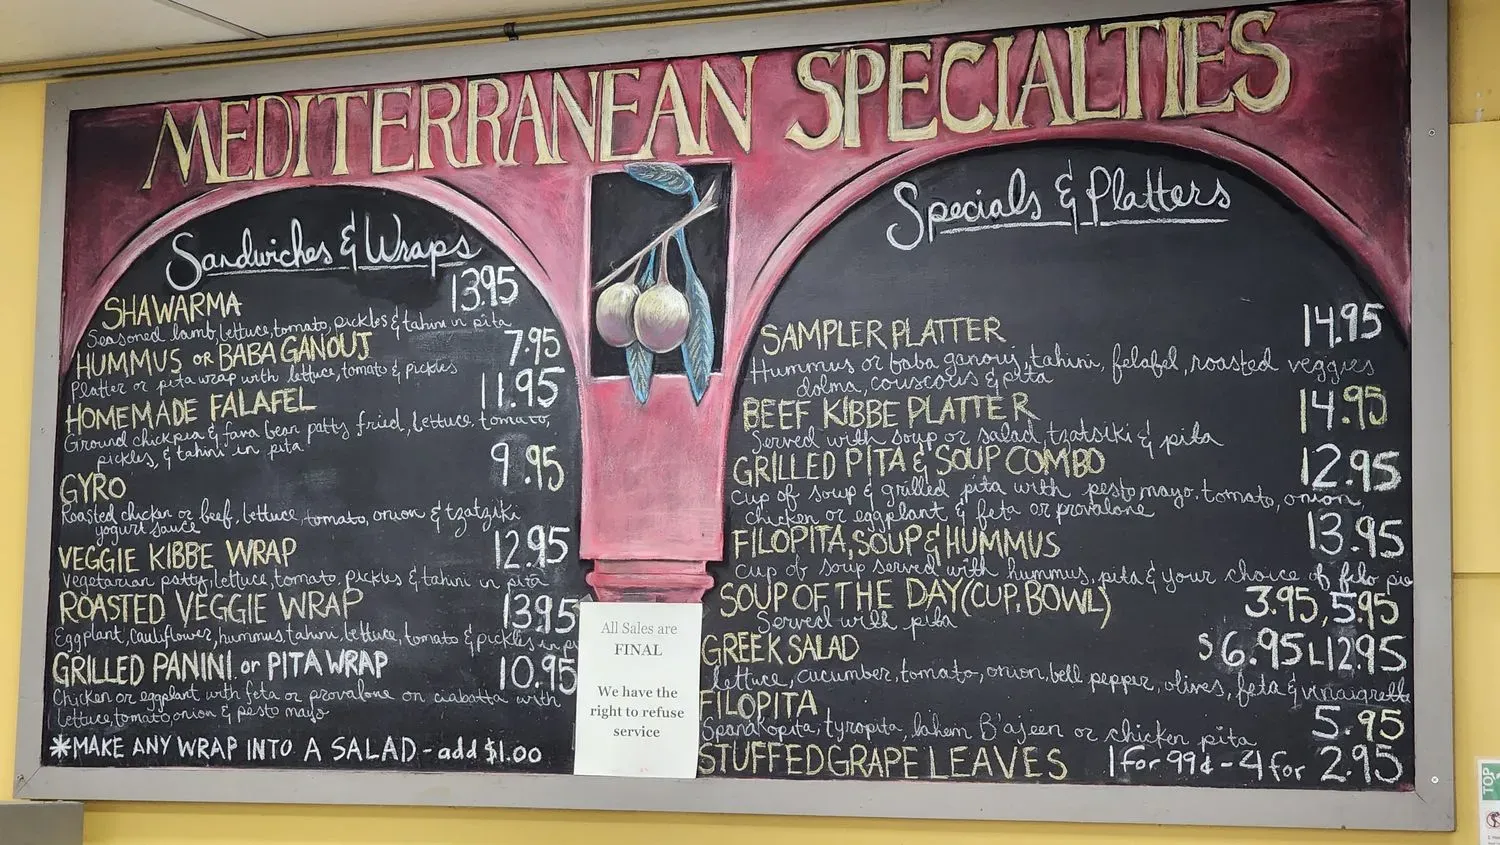 MEDITERRANEAN SPECIALTIES
Sandwiches & Wraps
SHAWARMA 13.95
Seasoned lamb, lettuce, tomato, pickles & tahini in pita
HUMMUS OR BABA GANOUJ 7.95
Platter or pita wrap with lettuce, tomato & pickles
HOMEMADE FALAFEL 11.95
Ground chickpea & fava bean patty fried, lettuce, tomato,
pickles, & tahini in pita
GYRO 9.95
Roasted chicken or beef, lettuce tomato, onion & tzatziki
yogurt sauce
VEGGIE KIBBE WRAP 12.95
Vegetarian patty, lettuce, tomato, pickles & tahini in pita
ROASTED VEGGIE WRAP 13.95
Eggplant, cauliflower, hummus, tahini, lettuce, tomato & pickles in
GRILLED PANINI or PITA WRAP 10.95
Chicken or eggplant with feta or provalone on ciabatta with
lettuce, tomato, onion & pesto mayo
*MAKE ANY WRAP INTO A SALAD - add $1.00
All Sales are
FINAL
We have the
right to refuse
service
Specials & Platters
SAMPLER PLATTER 14.95
Hummus or baba ganouj, tahini, felafel, roasted veggies
dolma, couscous & pita
BEEF KIBBE PLATTER 14.95
Served with soup or salad, tzatsiki & pita
GRILLED PITA & SOUP COMBO 12.95
Cup of soup & grilled pita with pesto mayo, tomato, onion,
chicken or eggplant & feta or provalone
FILOPITA, SOUP & HUMMUS 13.95
Cup of soup served with hummus, pita & your choice of filo pie
SOUP OF THE DAY (CUP, BOWL) 3.95, 5.95
Served with pita
GREEK SALAD $6.95 L12.95
lettuce, cucumber, tomato, onion, bell pepper, olives, feta & vinaigrette
FILOPITA 5.95
Spanakopita, tyropita, lahem B'ajeen or chicken pita
STUFFED GRAPE LEAVES 1 for 99¢ - 4 for 2.95
TOP